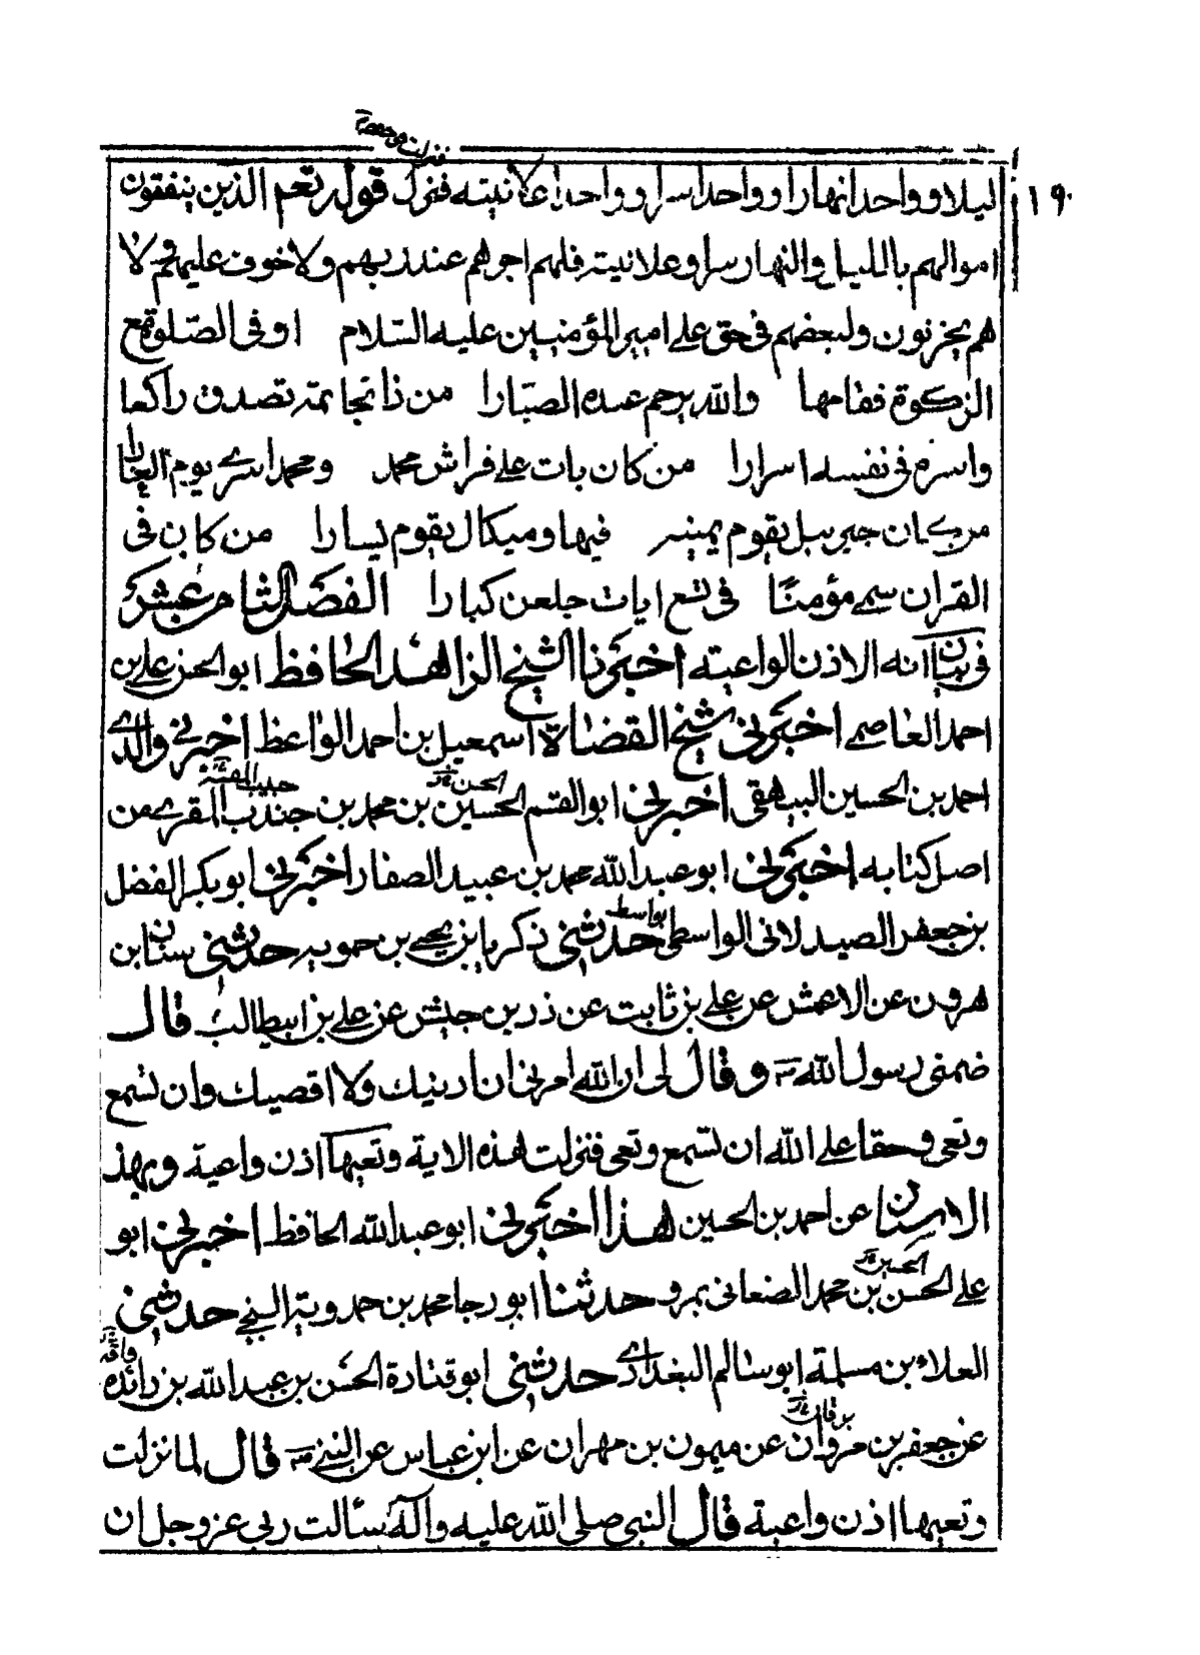 فنزلت
ليلا وواحدا نهارا وواحدا سرا وواحدا علانيته فنزل قوله تعم الذين ينفقون
١٩٠
اموالهم بالليل والنهار سرا وعلانيته فلهم اجرهم عند ربهم ولا خوف عليهم ولا
هم يحزنون ولبعضهم فى حق على امير المؤمنين عليه السلام اوفى الصلوة مع
الزكوة فقامها والله يرحم عبده الصبارا من ذا بخاتمه تصدق راكعا
واسره فى نفسه اسرارا من كان بات على فراش محمد ومحمد اسرى يوم الغارا
من كان جبرييل يقوم يمينه فيها وميكال يقوم يسارا من كان فى
القران سمى مؤمنا فى تسع ايات جلعن كبارا الفصل الثامن عشر
فى بيان انه الاذن الواعيته اخبرنا الشيخ الزاهد الحافظ ابو الحسن على بن
احمد العاصمى اخبرنى شيخ القضاة اسمعيل بن احمد الواعظ اخبرنى والدى
الحسن
احمد بن الحسين البيهقى اخبرنى ابو القسم الحسين بن محمد بن جندب المقرى من
اصل كتابه اخبرنى ابو عبد الله محمد بن عبيد الصفار اخبرنى ابو بكر الفضل
بواسط
بن جعفر الصيدلانى الواسطى حدثنى زكريا بن يحيى بن حمويه حدثنى سنان بن
هرون عن الاعمش عن على بن ثابت عن ذر بن حبيش عن على بن ابيطالب قال
ضمنى رسول الله ص وقال لى ان الله امرنى ان ادنيك ولا اقصيك وان تسمع
وتعى وحقا على الله ان تسمع وتعى فنزلت هذه الاية وتعيها اذن واعية وبهذ
الاسنان عن احمد بن الحسين هذا اخبرنى ابو عبد الله الحافظ اخبرنى ابو
الحسين
على الحسن بن محمد الصنعانى بمرو حدثنا ابو رجا محمد بن حمدوية السنجى حدثنى
العلاء بن مسلمة ابو سالم البغدادى حدثنى ابو قتادة الحسن بن عبد الله بن زائده
واقد
برقان
عن جعفر بن مروان عن ميمون بن مهران عن ابن عباس عن النبى ص قال لما نزلت
وتعيها اذن واعية قال النبى صلى الله عليه واله سألت ربى عز وجل ان